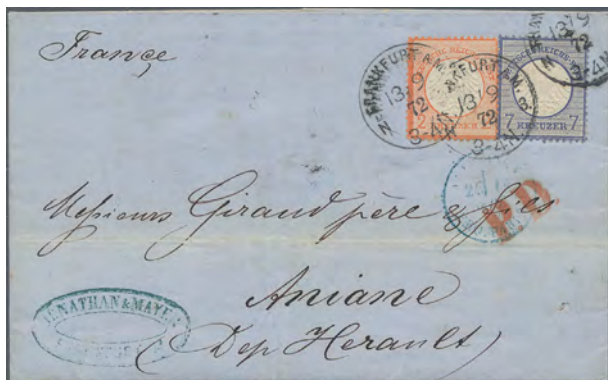 France
FRANKFURT A.M.
13 9
72
3-4N.
FRANKFURT A.M.
13 9
72
3-4N.
13 9
72
3-4N.
2
7 KREUZER 7
P.D.
Messieurs Giraud père & fils
Aniane
(Dep Herault)
JONATHAN & MAYER